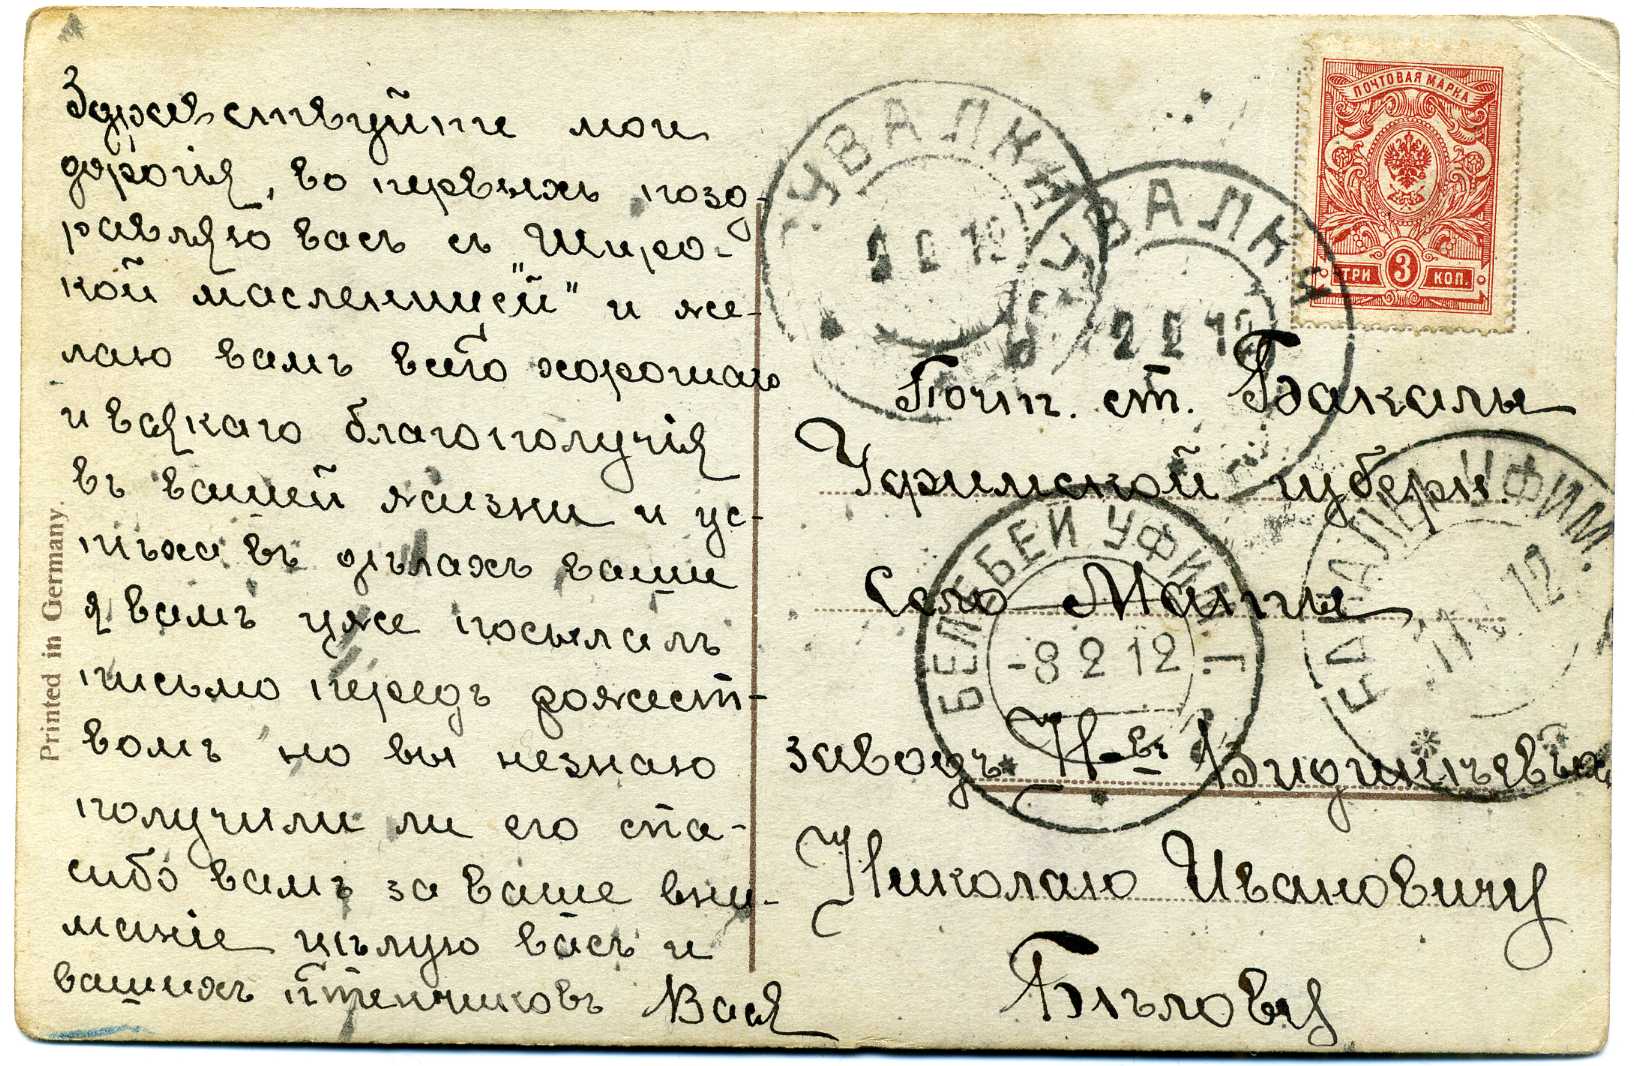 Здравствуйте мои
дорогія, во первыхъ позд-
равляю васъ съ "Широ-
кой масленицей" и же-
лаю вамъ всего хорошаго
и всякаго благополучія
въ вашей жизни и ус-
пѣха въ дѣлахъ ваши
я вамъ уже посылалъ
письмо передъ рожест-
вомъ но вы незнаю
получили ли его спа-
сибо вамъ за ваше вни-
маніе цѣлую васъ и
вашихъ птенчиковъ Вася
Printed in Germany
ПОЧТОВАЯ МАРКА
ТРИ 3 КОП.
СУВАЛКИ
СУВАЛКИ
2 2 12
Почт. ст. Бакалы
Уфимской губерн.
Село Маты
заводъ Н-въ
Николаю Ивановичу
Бѣлову
БЕЛЕБЕЙ УФИМ. Г.
-8 2 12
БАКАЛЫ УФИМ.
12